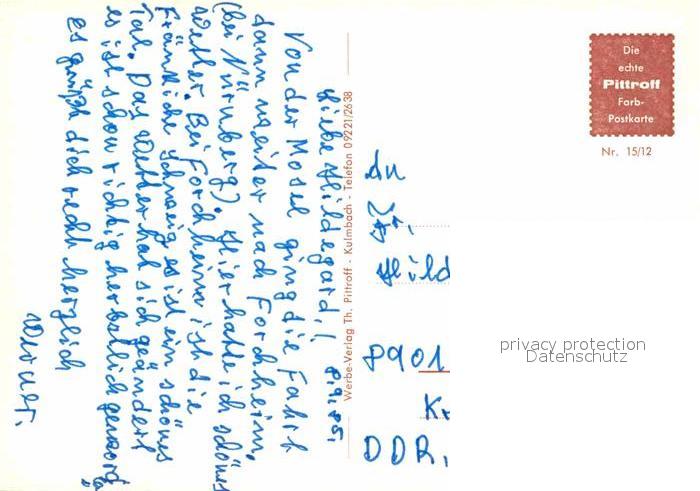 Liebe Hildegard! 8.9.85.
Von der Mosel ging die Fahrt
dann weiter nach Forchheim,
(bei Nürnberg). Hier hatte ich schönes
Wetter. Bei Forchheim ist die
Fränkische Schweiz es ist ein schönes
Tal. Das Wetter hat sich geändert
es ist schon richtig herbstlich geword
es grüßt dich recht herzlich
Werner.
Werbe-Verlag Th. Pittroff - Kulmbach - Telefon 09221/2638
Die
echte
Pittroff
Farb-
Postkarte
Nr. 15/12
An
Fr.
Hild
8901
Kr
DDR.
privacy protection
Datenschutz